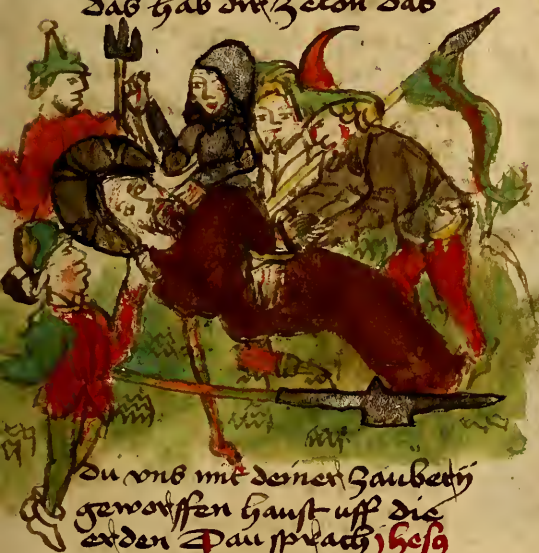 das hab dir zelon das
du vns mit deiner zaubery
geworffen haust uff die
erden Dau sprach jhesq